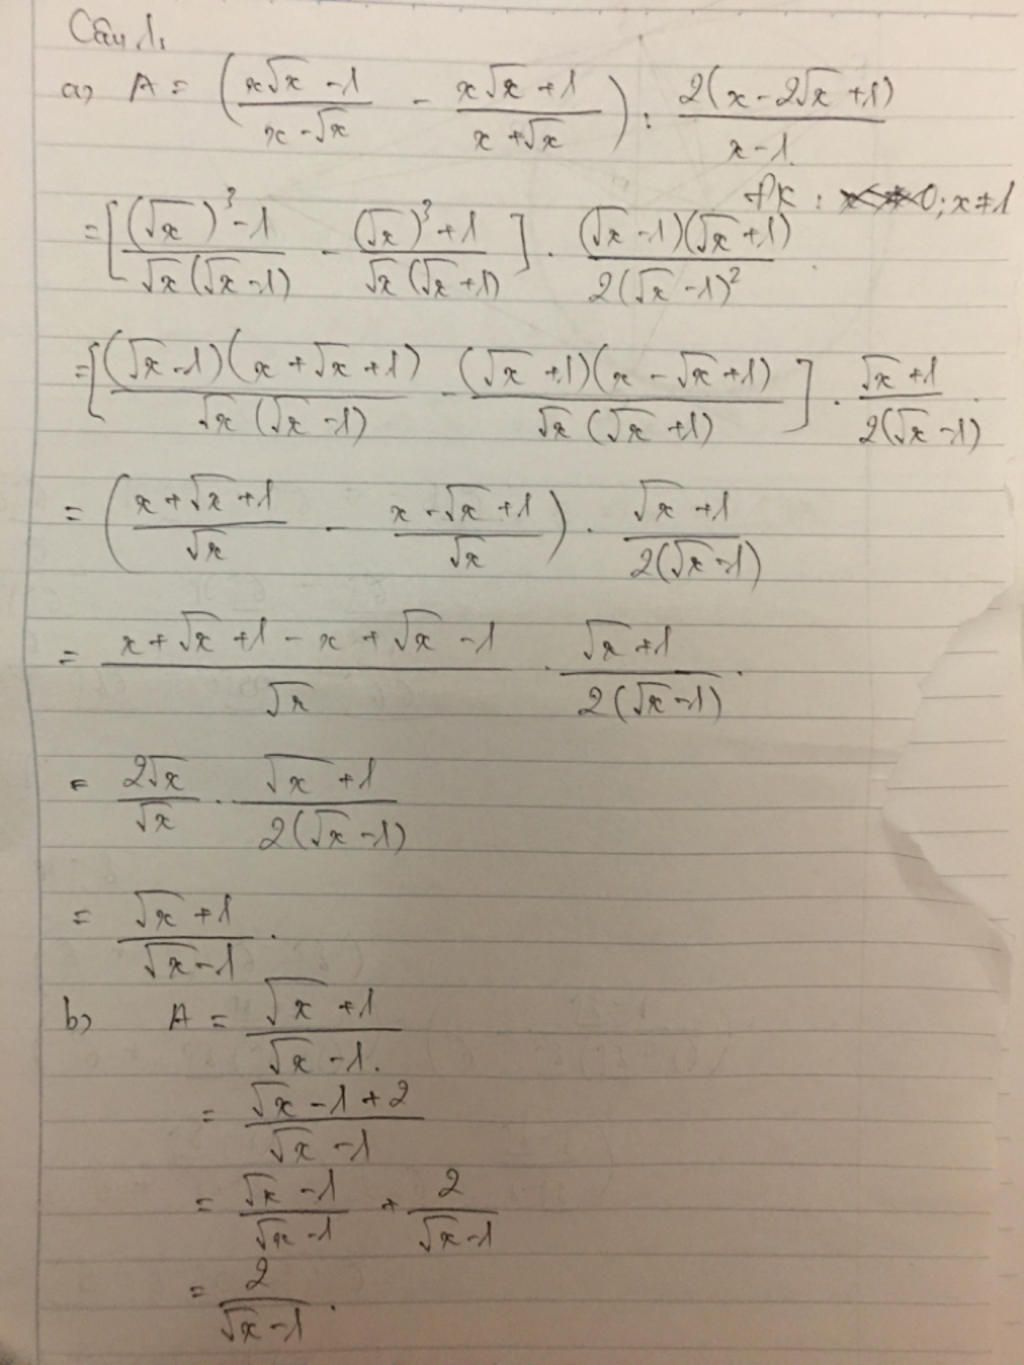 Câu 1,
a, A = ( (x√x - 1)/(x - √x) - (x√x + 1)/(x + √x) ) : 2(x - 2√x + 1)/(x - 1)
đk : 0; x ≠ 1
= [ ((√x)³ - 1)/(√x(√x - 1)) - ((√x)³ + 1)/(√x(√x + 1)) ] . (√x - 1)(√x + 1)/(2(√x - 1)²)
= [ (√x - 1)(x + √x + 1)/(√x(√x - 1)) - (√x + 1)(x - √x + 1)/(√x(√x + 1)) ] . (√x + 1)/(2(√x - 1))
= ( (x + √x + 1)/√x - (x - √x + 1)/√x ) . (√x + 1)/(2(√x - 1))
= (x + √x + 1 - x + √x - 1)/√x . (√x + 1)/(2(√x - 1)).
= 2√x/√x . (√x + 1)/(2(√x - 1))
= (√x + 1)/(√x - 1).
b, A = (√x + 1)/(√x - 1).
= (√x - 1 + 2)/(√x - 1)
= (√x - 1)/(√x - 1) + 2/(√x - 1)
= 2/(√x - 1).